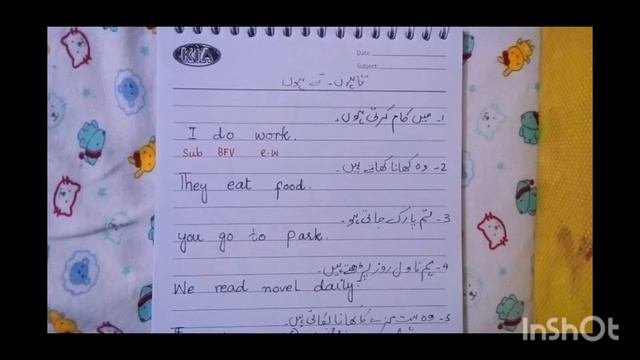 KIA
Date
Subject:
تا ہوں۔ تے ہوں
۱۔ میں کام کرتی ہوں۔
I do work.
Sub BFV e.w
۲۔ وہ کھانا کھاتے ہیں۔
They eat food.
۳۔ تم پارک جاتی ہو۔
you go to Park.
۴۔ ہم ناول روز پڑھتے ہیں۔
We read novel daily.
۵۔ وہ بہت مزے کا کھانا پکاتی ہیں۔
InShOt